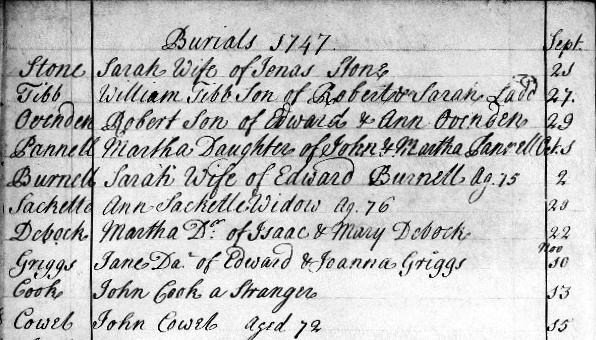 Burials 1747. Sept.
Stone Sarah Wife of Jenas Stone 21
Tibb William Tibb Son of Robert & Sarah Ladd 27.
Ovenden Robert Son of Edward & Ann Ovinden 29
Pannell Martha Daughter of John & Martha Pannell Oct. 1
Burnell Sarah Wife of Edward Burnell Ag. 75 2
Sackette Ann Sackette Widow Ag. 76 21
Debock Martha Dr. of Isaac & Mary Debock 22
Nov
Griggs Jane Da. of Edward & Joanna Griggs 10
Cook John Cook a Stranger 13
Cowel John Cowel Aged 72 15